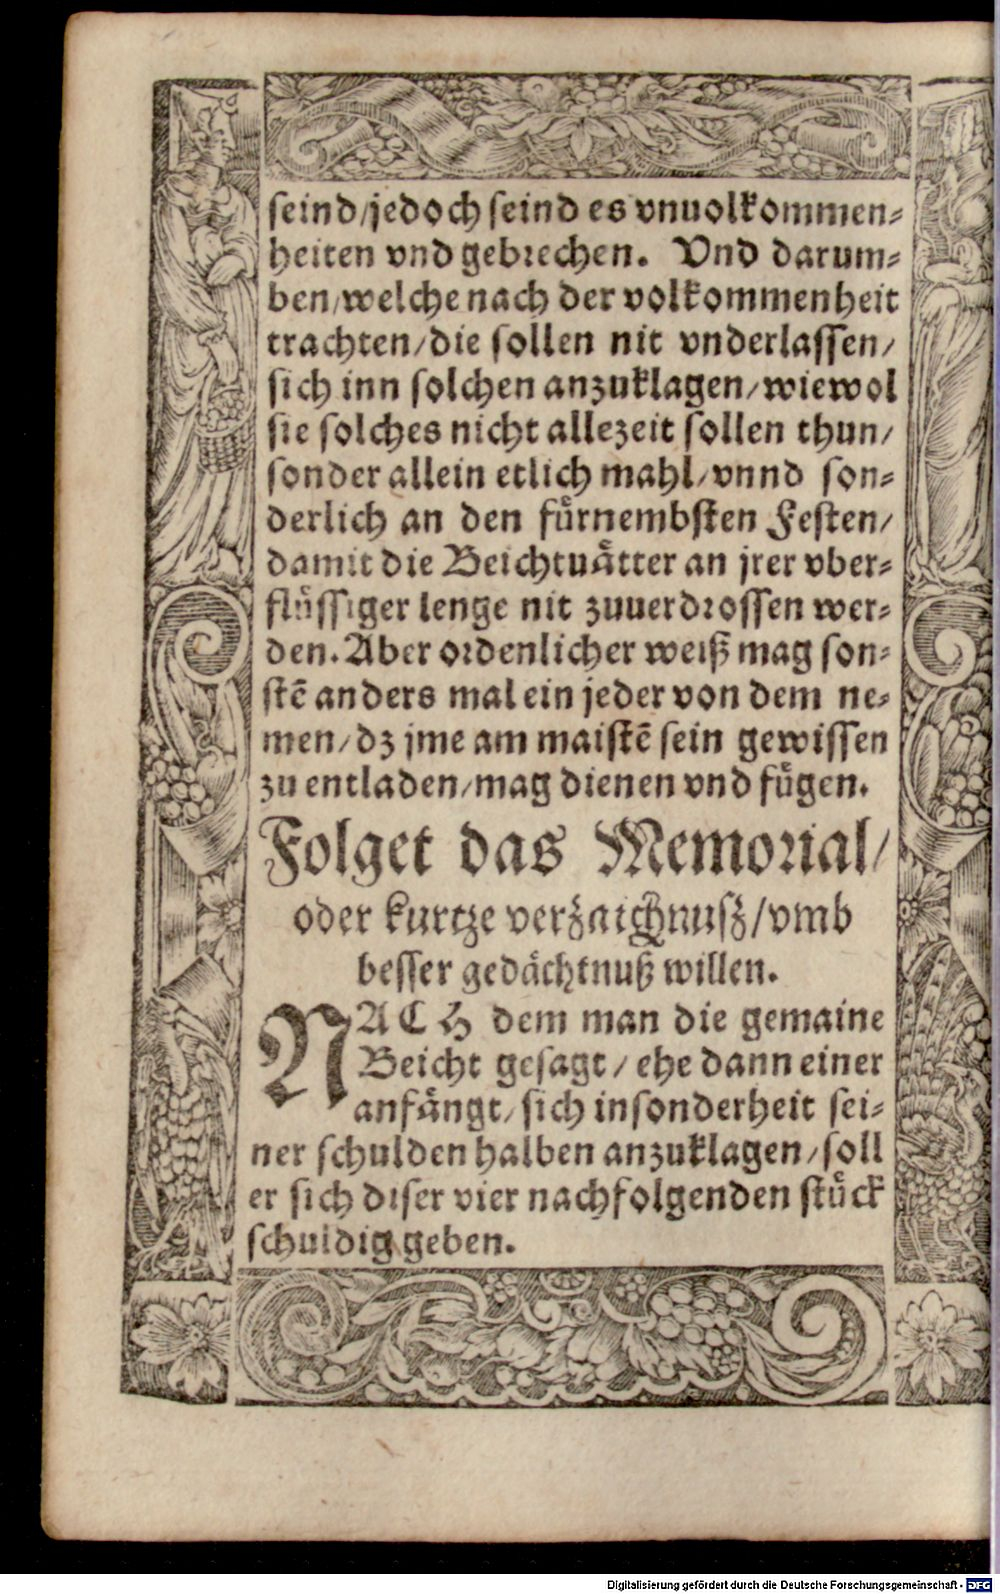 seind/jedoch seind es vnuolkommen⸗
heiten vnd gebrechen. Vnd darum⸗
ben/welche nach der volkommenheit
trachten/die sollen nit vnderlassen/
sich inn solchen anzuklagen/wiewol
sie solches nicht allezeit sollen thun/
sonder allein etlich mahl/vnnd son⸗
derlich an den fuͤrnembsten Festen/
damit die Beichtuaͤtter an jrer vber⸗
fluͤssiger lenge nit zuuerdrossen wer⸗
den. Aber ordenlicher weiß mag son⸗
stē anders mal ein jeder von dem ne⸗
men/dz jme am maistē sein gewissen
zu entladen/mag dienen vnd fuͤgen.
Folget das Memorial/
oder kurtze verzaichnusz/vmb
besser gedaͤchtnuß willen.
NACH dem man die gemaine
Beicht gesagt/ehe dann einer
anfaͤngt/sich insonderheit sei⸗
ner schulden halben anzuklagen/soll
er sich diser vier nachfolgenden stuͤck
schuldig geben.
Digitalisierung gefördert durch die Deutsche Forschungsgemeinschaft - DFG